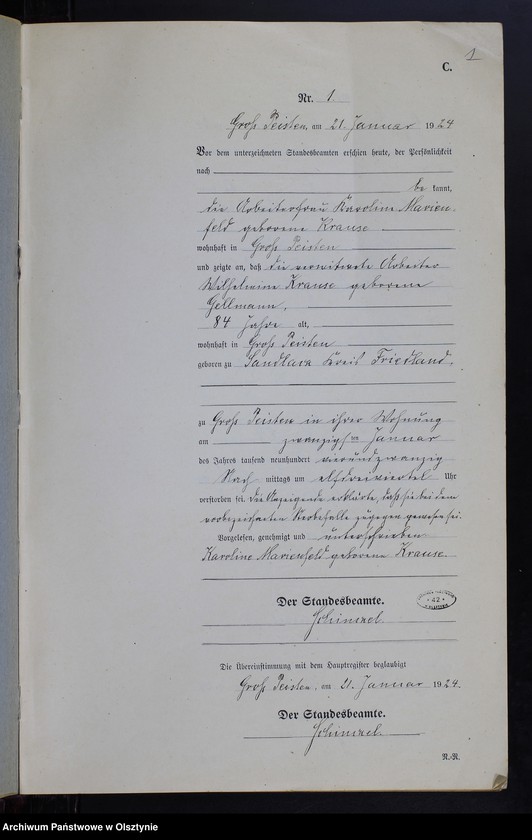 1
C.
Nr. 1
Groß Peisten, am 21. Januar 1924
Vor dem unterzeichneten Standesbeamten erschien heute, der Persönlichkeit
nach
be kannt,
die Arbeiterfrau Karoline Marien-
feld geborene Krause
wohnhaft in Groß Peisten
und zeigte an, daß die verwitwete Arbeiter
Wilhelmine Krause geborene
Gellmann,
84 Jahre alt,
wohnhaft in Groß Peisten
geboren zu Landkreis Friedland,
zu Groß Peisten in ihrer Wohnung
am zwanzigsten Januar
des Jahres tausend neunhundert vierundzwanzig
Nach mittags um elfdreiviertel Uhr
verstorben sei. Die Anzeigende erklärte, daß sie bei dem
vorbezeichneten Sterbefalle zugegen gewesen sei.
Vorgelesen, genehmigt und unterschrieben
Karoline Marienfeld geborene Krause
Der Standesbeamte.
42
Schimzel.
Die Übereinstimmung mit dem Hauptregister beglaubigt
Groß Peisten, am 21. Januar 1924.
Der Standesbeamte.
Schimzel.
N.-R.
Archiwum Państwowe w Olsztynie